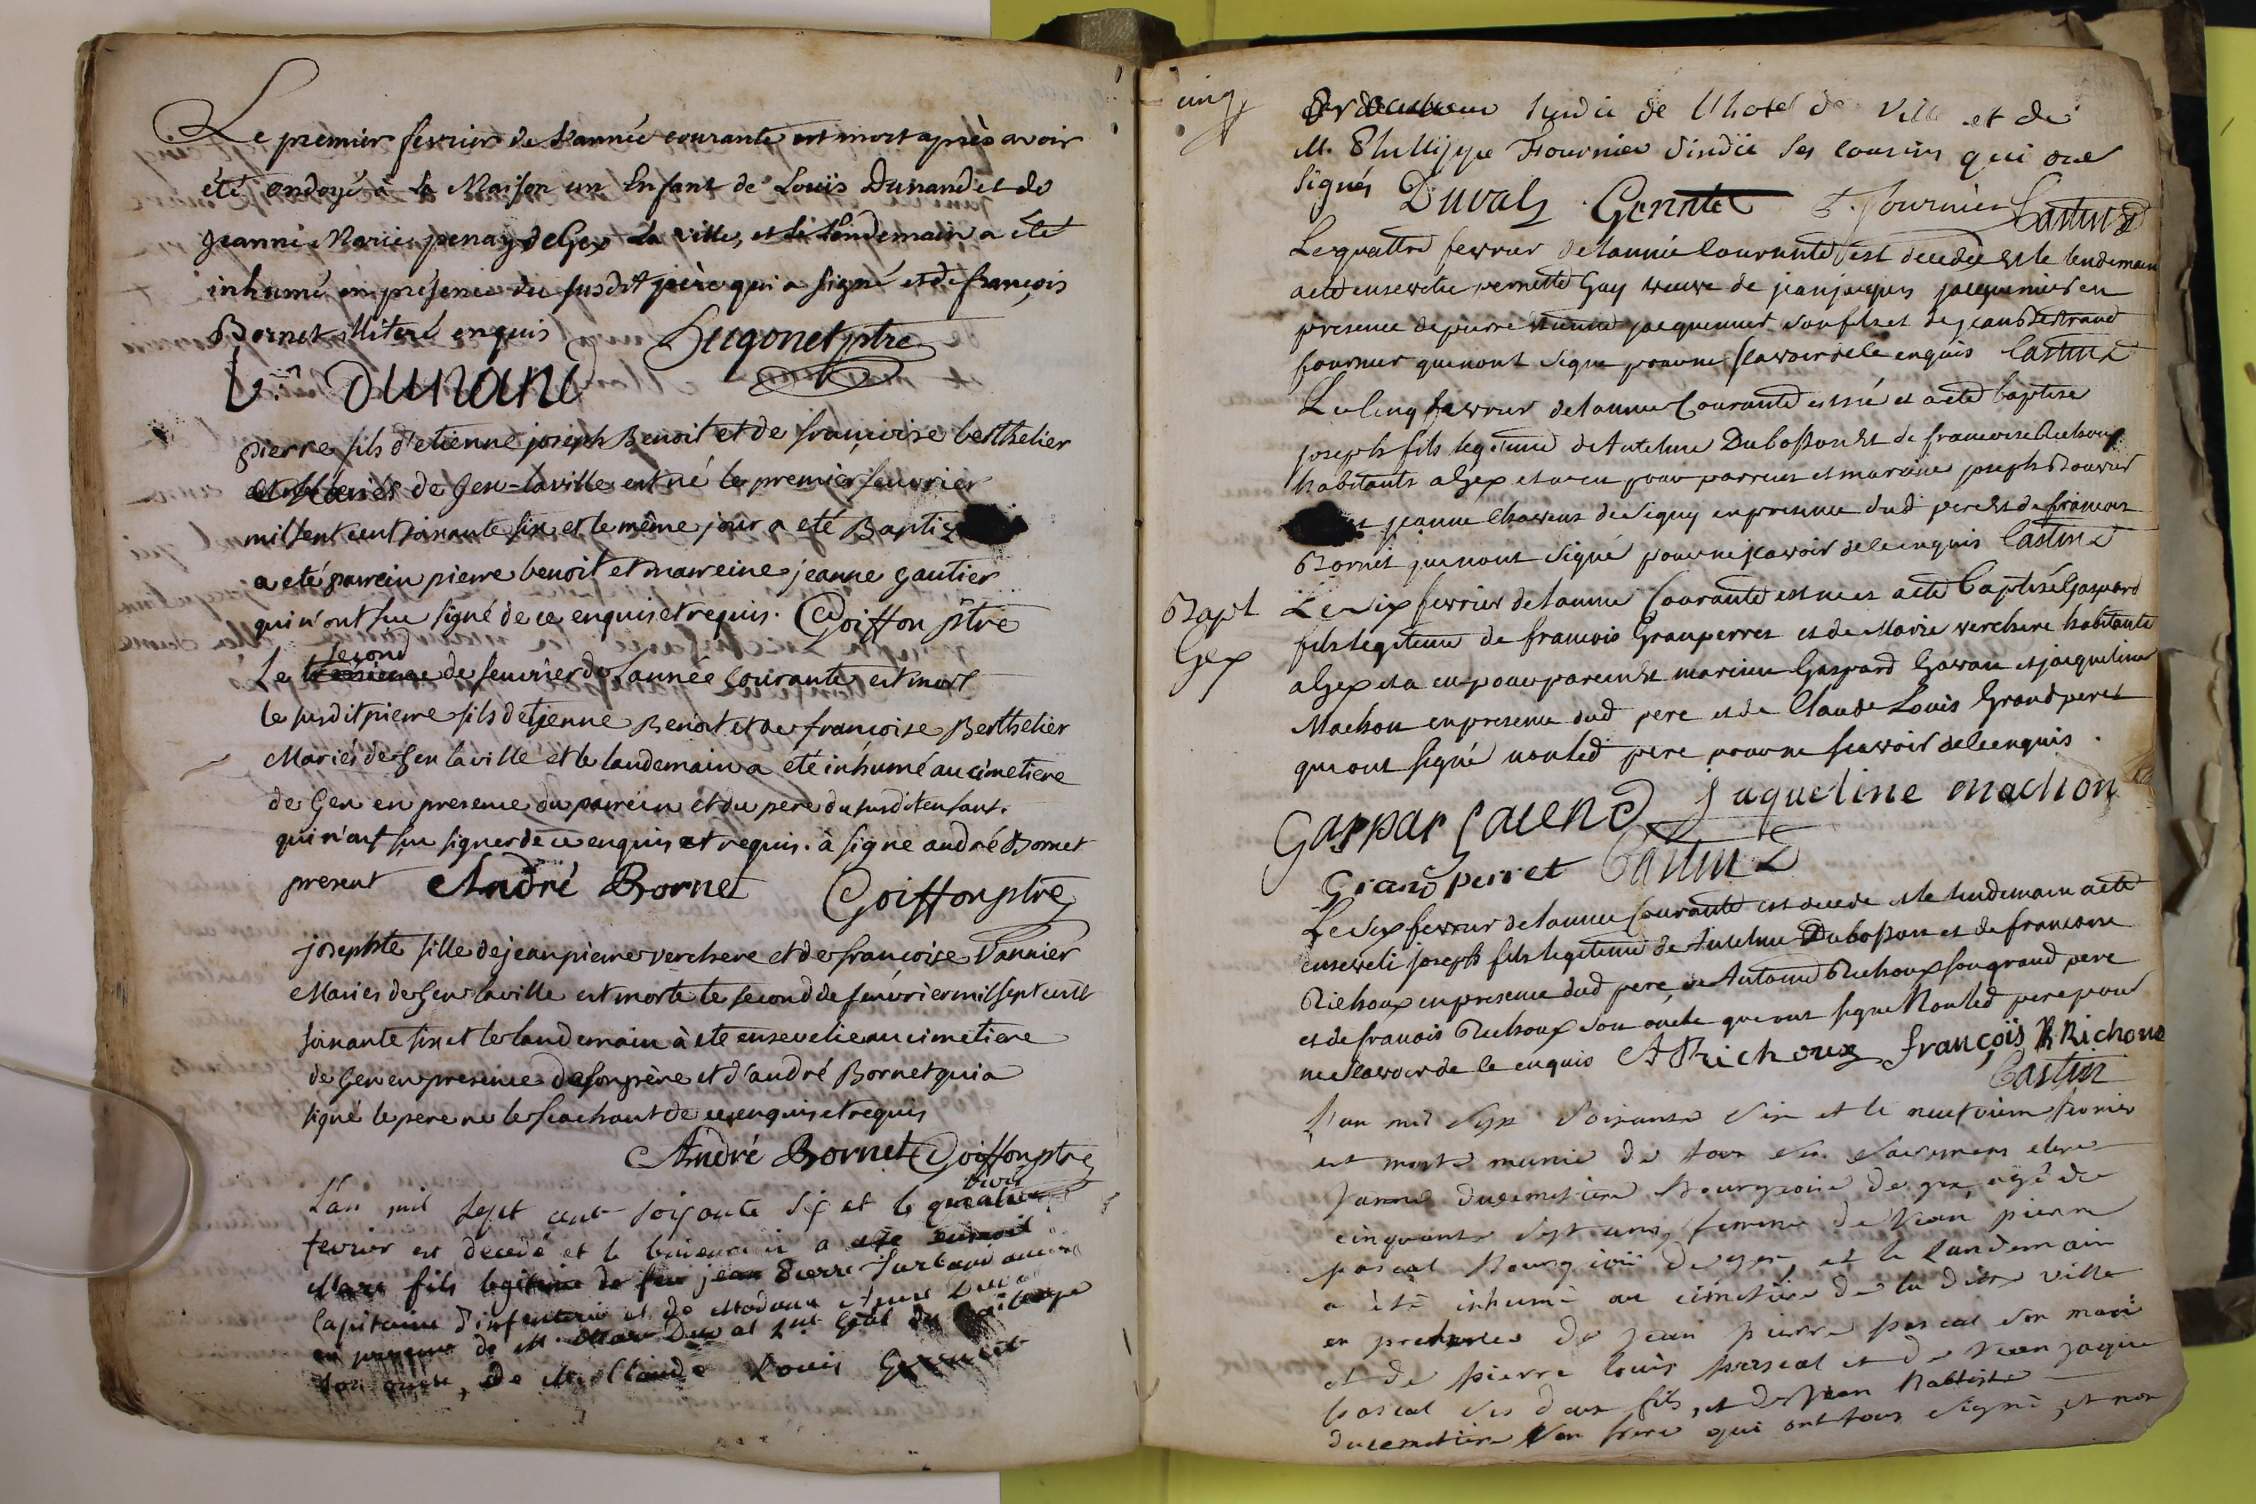 Le premier fevrier de l'année courante est mort après avoir
été ondoyé à la Maison un Enfant de Louis Dunand et de
jeanne Marie penay de Gex la ville, et le lendemain a été
inhumé en présence du susdit père qui a signé et de françois
Bornet illiteré enquis Hugonet ptre
Ls Dunand
pierre fils d'etienne joseph Benoit et de françoise berthelier
Mariés de Gex-la ville est né le premier feuvrier
mil sept cent soixante six et le même jour a eté Baptizé
a eté parrein pierre benoit et marreine jeanne gautier
qui n'ont sçu signé de ce enquis et requis. Goiffon ptre
second
Le de feuvrier de l'année courante est mort
le susdit pierre fils detjenne Benoit et de françoise Berthelier
Mariés de Gex la ville et le landemain a eté inhumé au cimetiere
de Gex en presence du parrein et du pere du susdit enfant.
qui n'ont sçu signer de ce enquis et requis. à signé andré Bornet
present André Bornet Goiffon ptre
josephte fille de jean pierre verchere et de françoise Vannier
Mariés de Gex la ville est morte le second de feuvrier mil sept cent
soixante six et le landemain à eté ensevelie au cimetiere
de Gex en presence de son père et d'andré Bornet qui a
signé le pere ne le scachant de ce enquis et requis
André Bornet Goiffon ptre
L'an mil sept cent soixante six et le
fevrier est decedé et le a été
Marc fils legitime de feu jean Pierre
Capitaine d'infanterie et de Madame
en presence de Mr Marc Duval Lnt Gral du
son oncle, de Mr Claude Louis
cinq
Sindic de l'hotel de Ville et de
M. Phillippe Fournier sindic ses cousins qui ont
signés Duval Fournier Castin
Le quattre fevrier de lannée courante est decedée et le lendemain
a eté ensevelie pernette Guy veuve de jean jaques jacquemier en
presence de pierre jacquemier son fils et de jean
fournier qui nont signe pour ne scavoir de ce enquis Castin
Le cinq fevrier de lannee courante est né et a eté baptise
joseph fils legitime de Antelme Dubosson et de francoise Richoux
habitants a Gex et a eu pour parrein et mareine joseph Bouvier
et jeanne Chavent de Segny en presence dud pere et de francois
Bornet qui nont signé pour ne scavoir de ce enquis Castin
Bapt Le six fevrier de lannee courante est ne et a eté baptisé Gaspard
Gex fils legitime de francois Granperret et de Marie verchere habitants
a Gex et a eu pour parein et mareine Gaspard Gavan et jacqueline
Machon en presence dud pere et de Claude Louis Grandperet
qui ont signé non led pere pour ne scavoir de ce enquis.
Gaspar jaqueline machon
Grand perret Castin
Le six fevrier de lannee courante est decede et le lendemain a eté
enseveli joseph fils legitime de Antelme Dubosson et de francoise
Richoux en presence dud pere, de Antoine Richoux son grand pere
et de francois Richoux son oncle qui ont signe Non led pere pour
ne scavoir de ce enquis A Richoux françois Richoux
Castin
L'an mil sept soixante six et le neufvieme fevrier
est morte munie de tous les sacremens
jeanne ducemetiere Bourgeoise de gex, agée de
cinquante sept ans, femme de Jean pierre
pascal Bourgeois de gex, et le landemain
a èté inhumé au cimetiere de la dite ville
en presence de jean pierre pascal son mari
et de pierre louis pascal et de Jean jaque
pascal ses deux fils, et de Jean Baptiste
ducemetiere son frere qui ont tous signé, et non